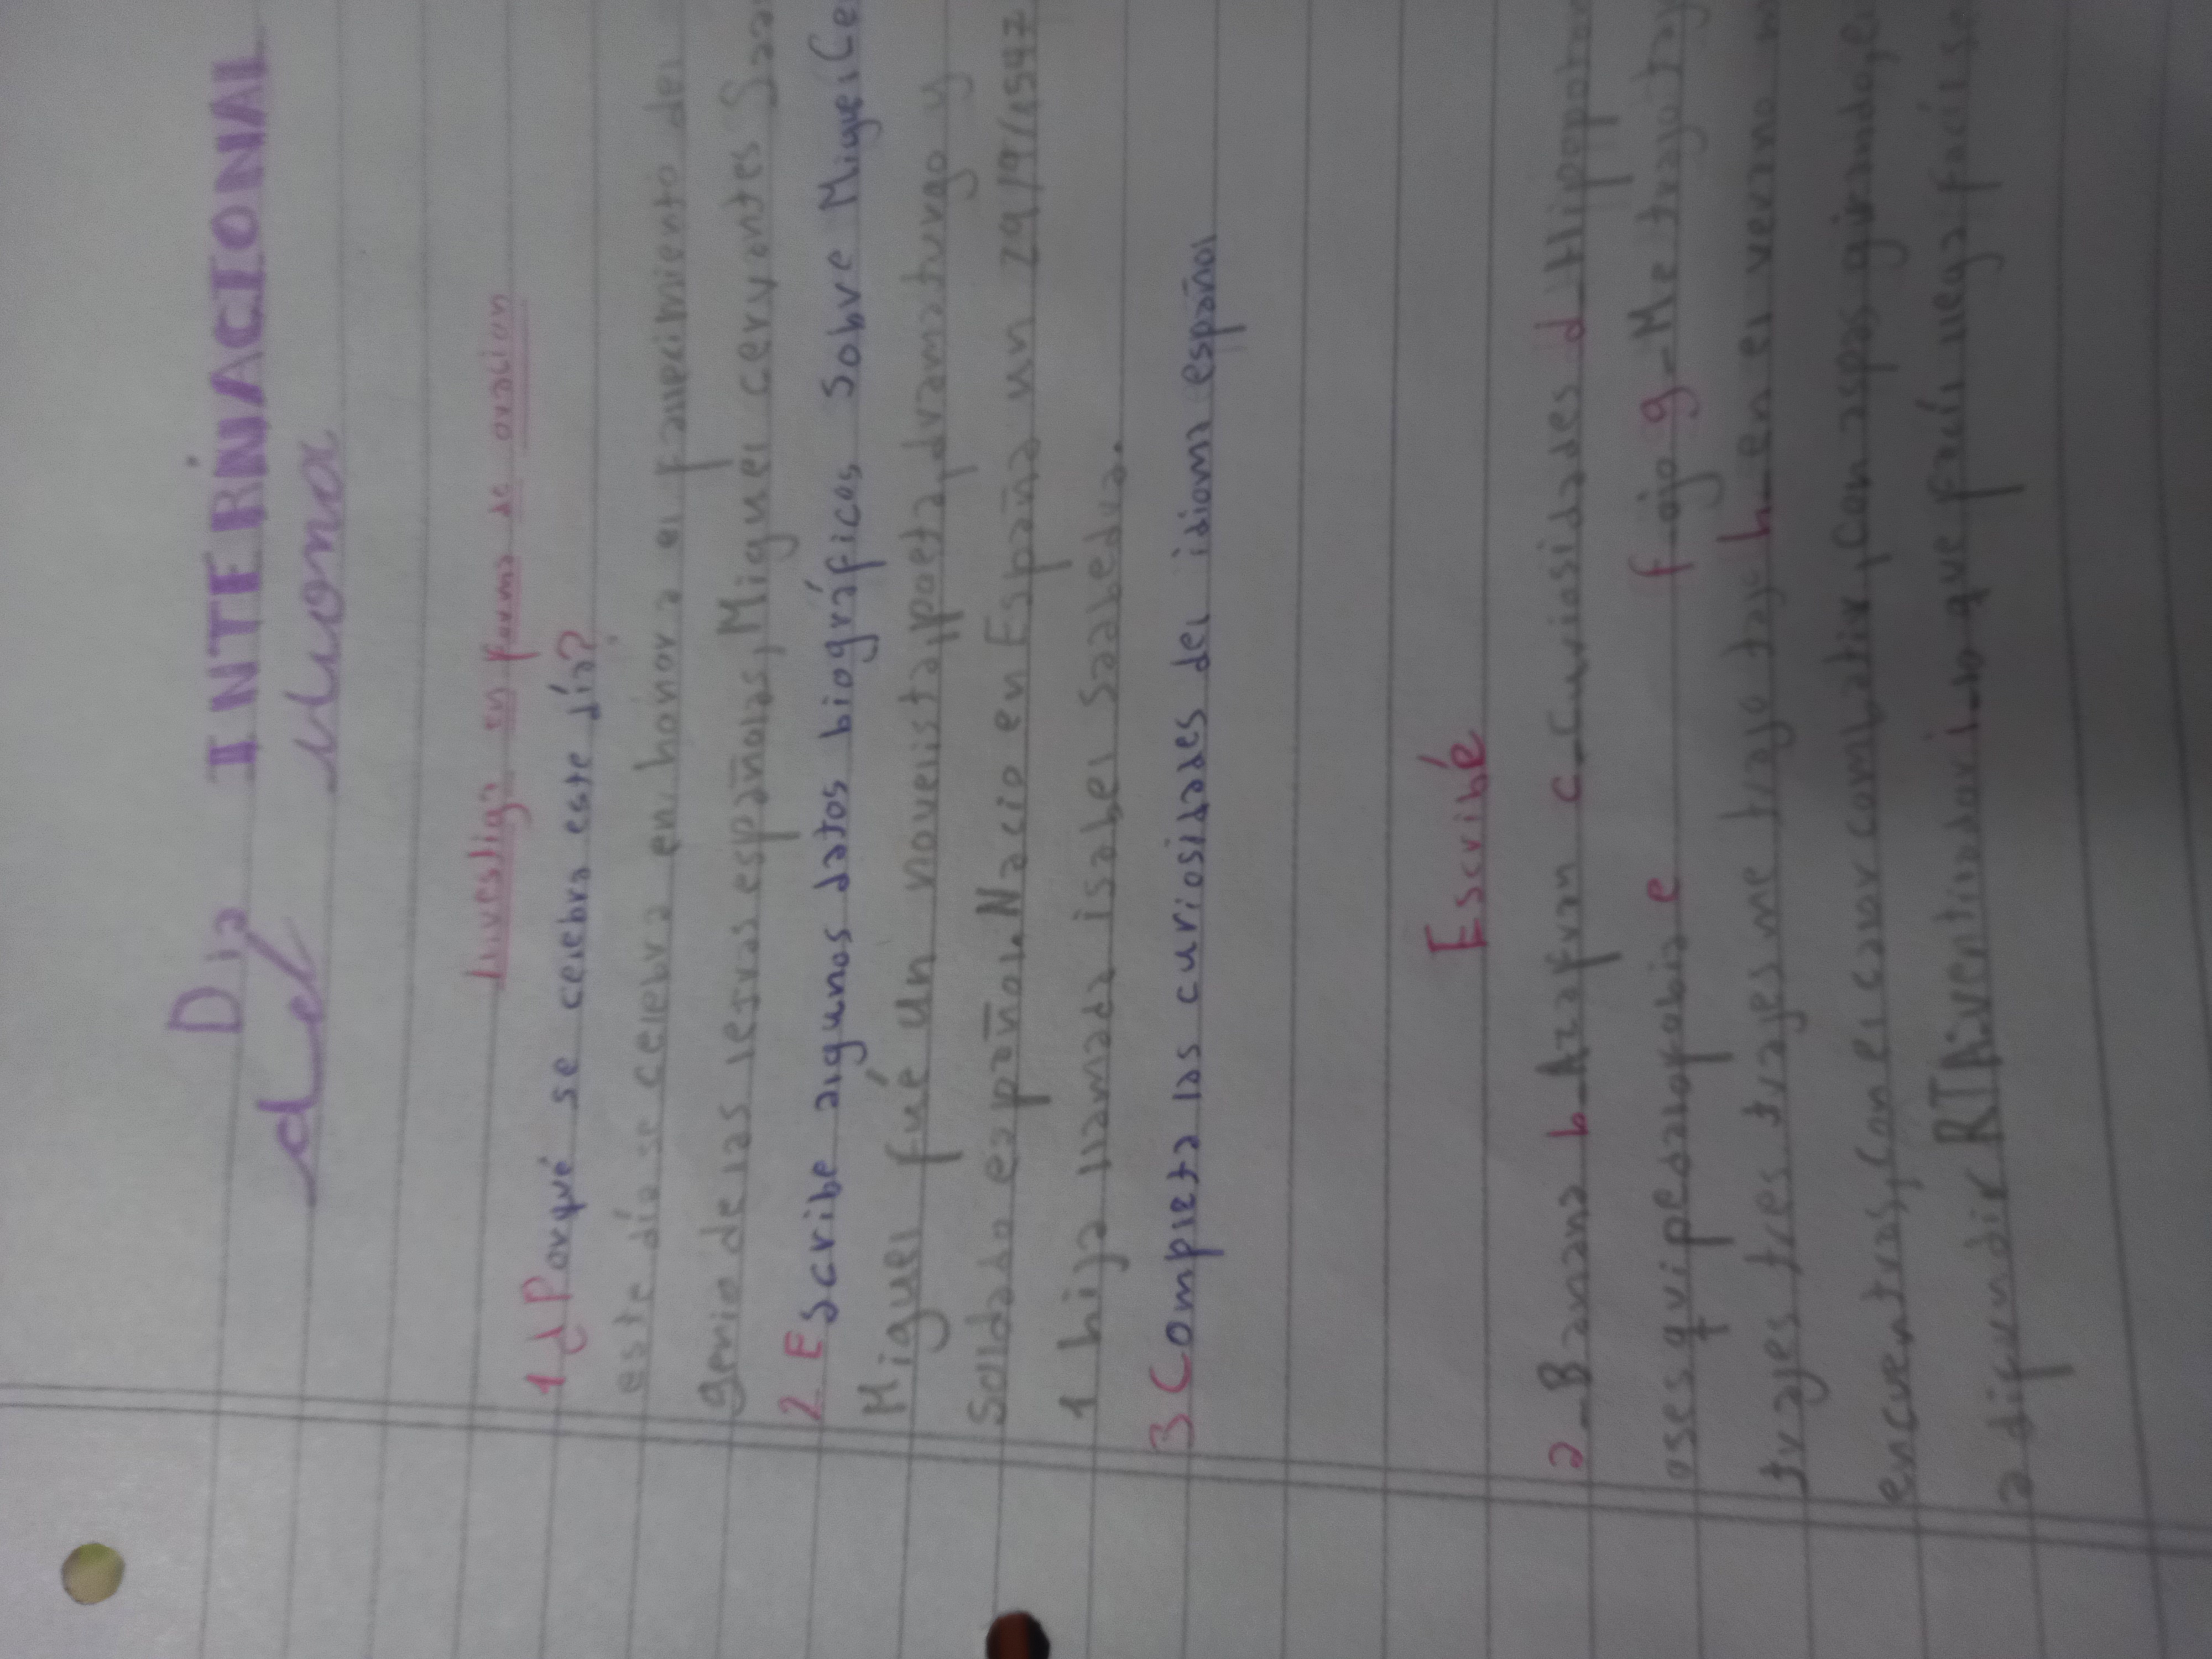 Dia INTERNACIONAL
del idioma
Investiga en forma de oracion
1 ¿Porqué se celebra este día?
este día se celebra en honor a el fallecimiento del
genio de las letras españolas, Miguel cervantes Saa
2 Escribe algunos datos biográficos Sobre Miguel Ce
Miguel fué un novelista, poeta, dramaturgo y
Soldado español. Nacio en España un 29/9/1547
1 hija llamada isabel saabedra.
3 Completa las curiosidades del idioma español
Escribé
a-Banana b-Azafran c-Curiosidades d-Hipopotom
osesquipedaliofobia e f-ojo g-Me trajo tajo
trajes tres trajes me trajo tajo h-en el verano m
encuentras, Con el calor combatir, con aspas girando, el
a difundir RTA:ventilador i-lo que fácil llega fácil se